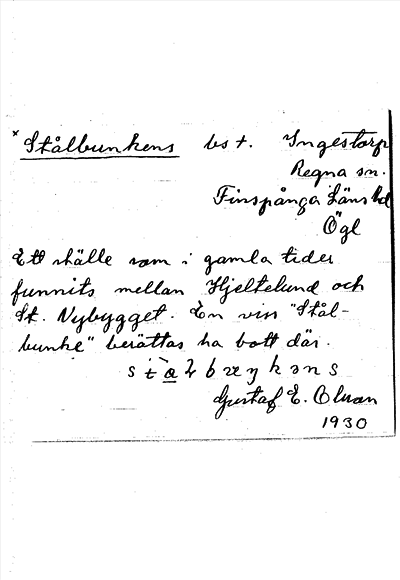 * Stålbunkens bst. Ingestorp
Regna sn.
Finspånga Läns hd
Ögl
Ett ställe som i gamla tider
funnits mellan Hjeltelund och
St. Nybygget. En viss "Stål-
bunke" berättas ha bott där.
Gustaf E. Olsson
1930